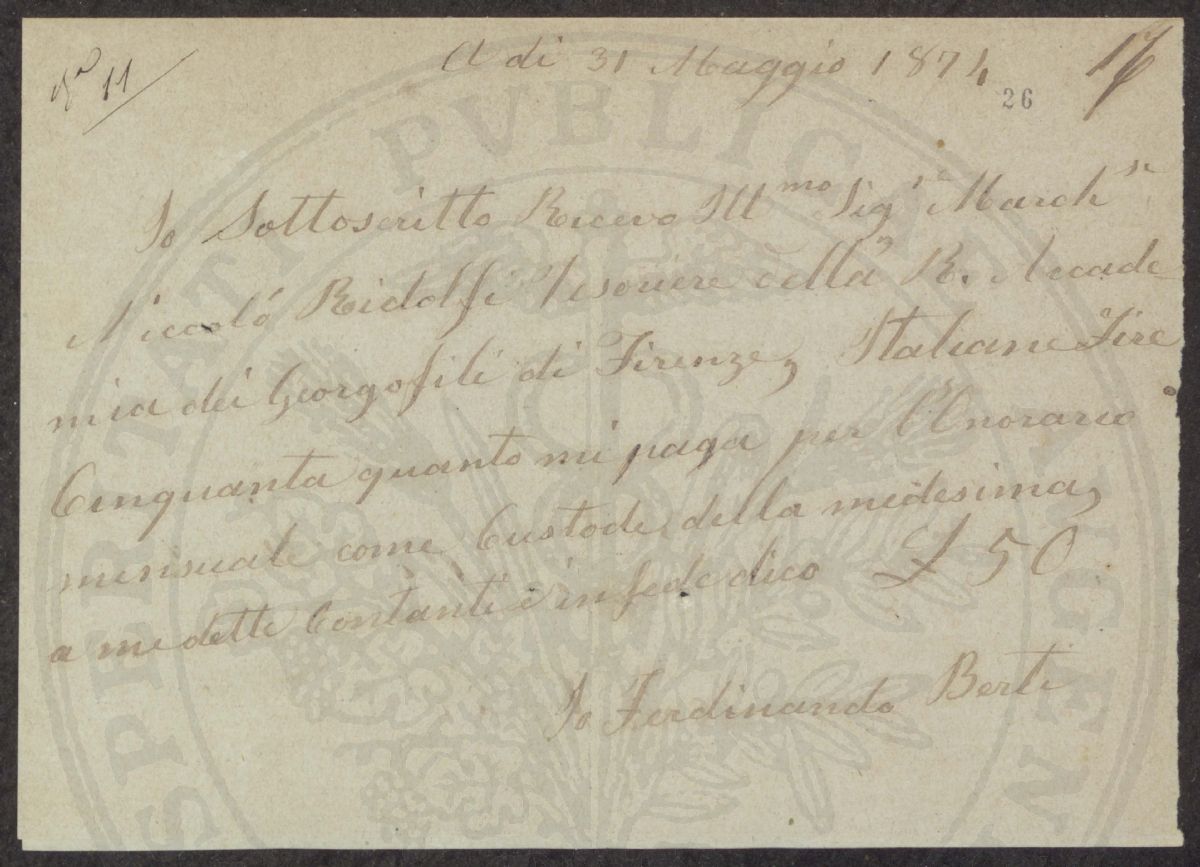 N° 11
A di 31 Maggio 1874
17
26
Io Sottoscritto Ricevo Ill<sup>mo</sup> Sig<sup>re</sup> March<sup>se</sup>
Niccoló Ridolfi Tesoriere della R. Accade
mia dei Georgofili di Firenze, Italiane Lire
Cinquanta quanto mi paga per l'Onorario
mensuale come Custode della medesima,
a me detti Contanti é in fede dico £ 50
Io Ferdinando Berti
PROSPERITATI PVBLICAE AVGEN